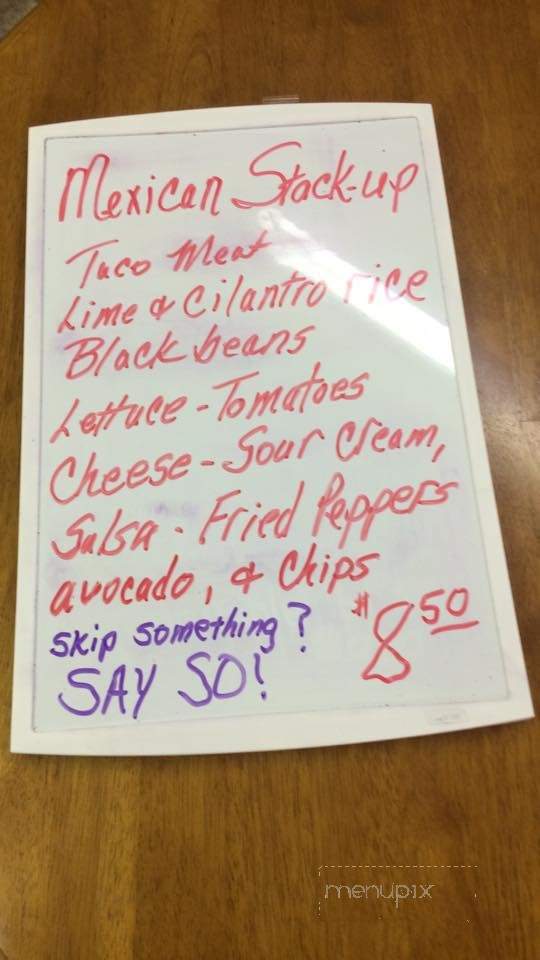 Mexican Stack-up
Taco Meat
Lime & Cilantro rice
Black beans
Lettuce - Tomatoes
Cheese - Sour Cream,
Salsa - Fried Peppers
avocado, & Chips
skip something?
SAY SO!
$8.50
menupix